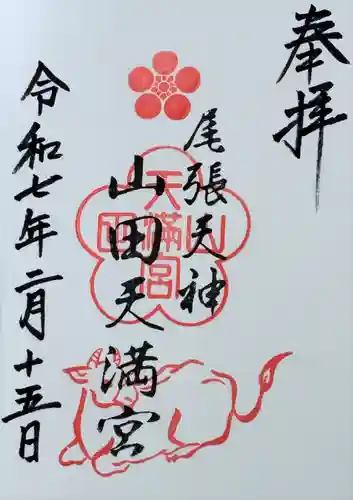 奉拝
尾張天神
山田天満宮
山田天満宮
令和七年二月十五日